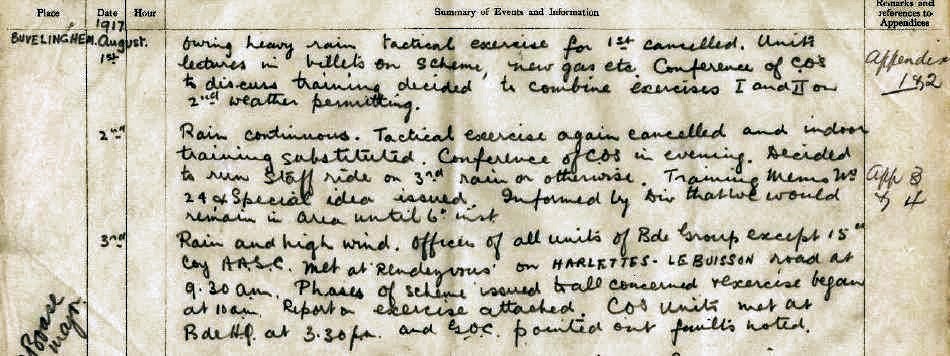 Place Date Hour Summary of Events and Information Remarks and references to Appendices
1917
BUVELINGHEM. August.
1st Owing heavy rain tactical exercise for 1st cancelled. Units
lectures in billets on scheme, new gas etc. Conference of COS Appendix
to discuss training decided to combine exercises I and II on 1 & 2
2nd weather permitting.
2nd Rain continuous. Tactical exercise again cancelled and indoor
training substituted. Conference of COS in evening. Decided
to run Staff ride on 3rd rain or otherwise. Training Memo No App 3
24 & Special idea issued. Informed by Div that we would & 4
remain in area until 6th inst
3rd Rain and high wind. Officers of all units of Bde Group except 15th
Coy A.A.S.C. met at 'Rendezvous' on HARLETTES - LE BUISSON road at
9.30 am. Phases of scheme issued to all concerned & exercise began
at 10 am. Report on exercise attached. COS Units met at
Bde H.Q. at 3.30 pm. and G.O.C. pointed out faults noted.
Major